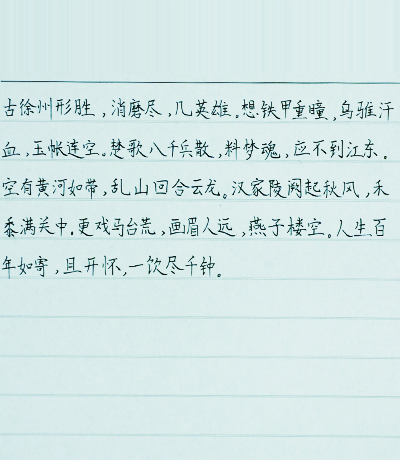 古徐州形胜,消磨尽,几英雄。想铁甲重瞳,乌骓汗
血,玉帐连空。楚歌八千兵散,料梦魂,应不到江东。
空有黄河如带,乱山回合云龙。汉家陵阙起秋风,禾
黍满关中。更戏马台荒,画眉人远,燕子楼空。人生百
年如寄,且开怀,一饮尽千钟。